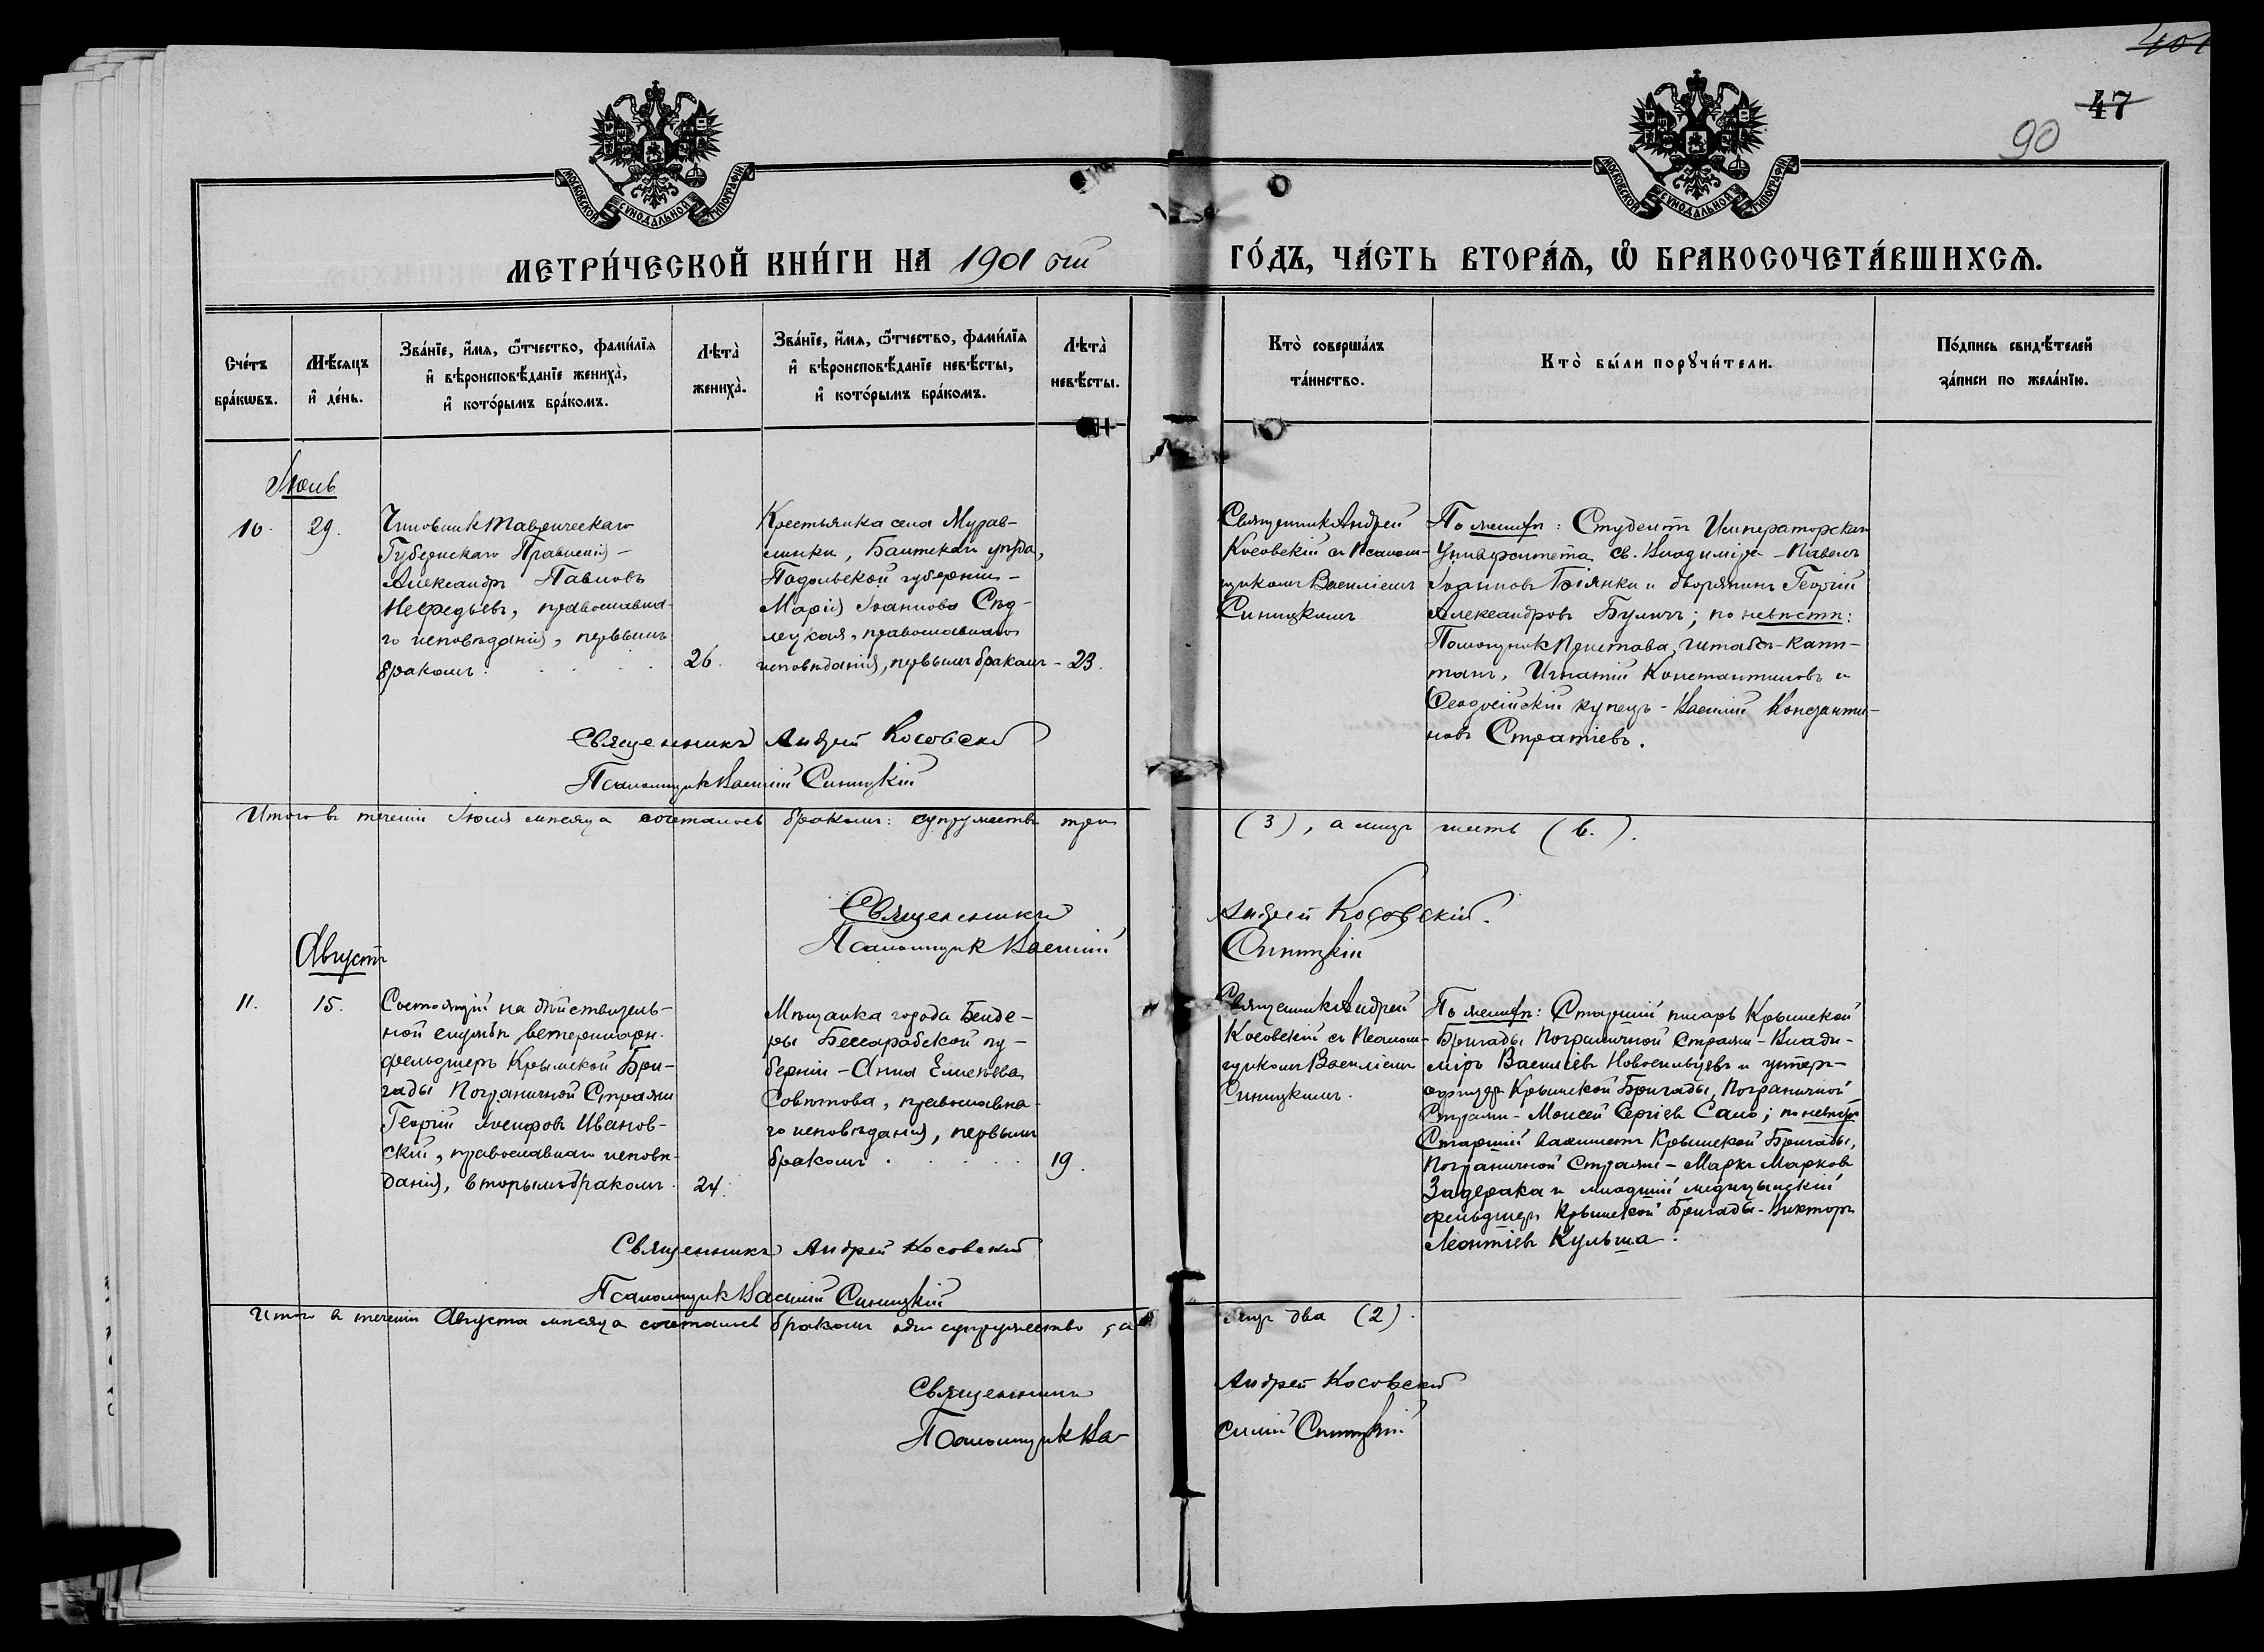 401
47
90
МОСКОВСКОЙ СѴНОДАЛЬНОЙ ТИПОГРАФІИ
МОСКОВСКОЙ СѴНОДАЛЬНОЙ ТИПОГРАФІИ
МЕТРИ́ЧЕСКОЙ КНИ́ГИ НА 1901 ый ГО́ДЪ, ЧА́СТЬ ВТОРА́Ѧ, Ѡ҆ БРАКОСОЧЕТА́ВШИХСѦ.
Сче́тъ
бра́кѡвъ.
Мѣ́сяцъ
и҆ де́нь.
Зва́нїе, и҆́мя, ѻ҆́тчество, фами́лїя
и҆ вѣроисповѣ́данїе жениха̀,
и҆ кото́рымъ бра́комъ.
Лѣта̀
жениха̀.
Зва́нїе, и҆́мя, ѻ҆́тчество, фами́лїя
и҆ вѣроисповѣ́данїе невѣ́сты,
и҆ кото́рымъ бра́комъ.
Лѣта̀
невѣ́сты.
Кто̀ соверша́лъ
та́инство.
Кто̀ бы́ли порꙋчи́тели.
По́дпись свидѣ́телей
за́писи по жела́нїю.
Іюль
10.
29.
Чиновникъ Таврическаго
Губернскаго Правленія –
Александръ Павловъ
Нефедьевъ, православна-
го исповѣданія, первымъ
бракомъ.
26.
Крестьянка села Мурав-
линки, Балтскаго уѣзда,
Подольской губерніи –
Марія Іоаннова Сѣд-
лецкая, православнаго
исповѣданія, первымъ бракомъ –
23.
Священникъ Андрей
Косовскій съ Псалом-
щикомъ Василіемъ
Синицкимъ
По женихѣ: Студентъ Императорскаго
Университета св. Владиміра – Павелъ
Іоанновъ Біянки и дворянинъ Георгій
Александровъ Буличъ; по невѣстѣ:
Помощникъ Пристава, штабсъ-капи-
танъ, Игнатій Константиновъ и
Ѳеодосійскій купецъ – Василій Константи-
новъ Стратіевъ.
Священникъ Андрей Косовскій
Псаломщикъ Василій Синицкій
Итого въ теченіи Іюля мѣсяца сочеталось бракомъ: супружествъ три (3), а лицъ шесть (6.).
Священникъ Андрей Косовскій.
Псаломщикъ Василій Синицкій
Августъ
11.
15.
Состоящій на дѣйствитель-
ной службѣ ветеринарн.
фельдшеръ Крымской Бри-
гады Пограничной Стражи
Георгій Іосифовъ Иванов-
скій, православнаго исповѣ-
данія, вторымъ бракомъ.
24.
Мѣщанка города Бенде-
ры Бессарабской гу-
берніи – Анна Елисѣева
Совѣтова, православна-
го исповѣданія, первымъ
бракомъ
19.
Священникъ Андрей
Косовскій съ Псалом-
щикомъ Василіемъ
Синицкимъ.
По женихѣ: Старшій писарь Крымской
Бригады Пограничной Стражи – Влади-
міръ Василіевъ Новосильцевъ и унтеръ-
офицеръ Крымской Бригады, Пограничной
Стражи – Моисей Сергіевъ Сало; по невѣстѣ
Старшій вахмистръ Крымской Бригады,
Пограничной Стражи – Маркъ Марковъ
Задерака и младшій медицынскій
фельдшеръ Крымской Бригады – Викторъ
Леонтіевъ Кульша.
Священникъ Андрей Косовскій
Псаломщикъ Василій Синицкій
Итого въ теченіи Августа мѣсяца сочеталось бракомъ одно супружество, а лицъ два (2).
Священникъ Андрей Косовскій
Псаломщикъ Василій Синицкій